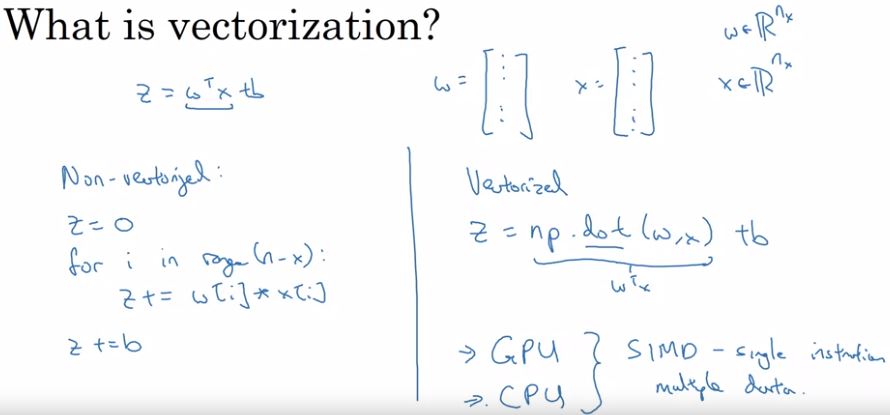 What is vectorization?
z = wᵀx + b
w = [⋮] x = [⋮]
w ∈ ℝⁿˣ
x ∈ ℝⁿˣ
Non-vectorized:
z = 0
for i in range(n-x):
z += w[i] * x[i]
z += b
Vectorized
z = np.dot(w,x) + b
wᵀx
→ GPU
→ CPU
} SIMD - single instruction
multiple data.